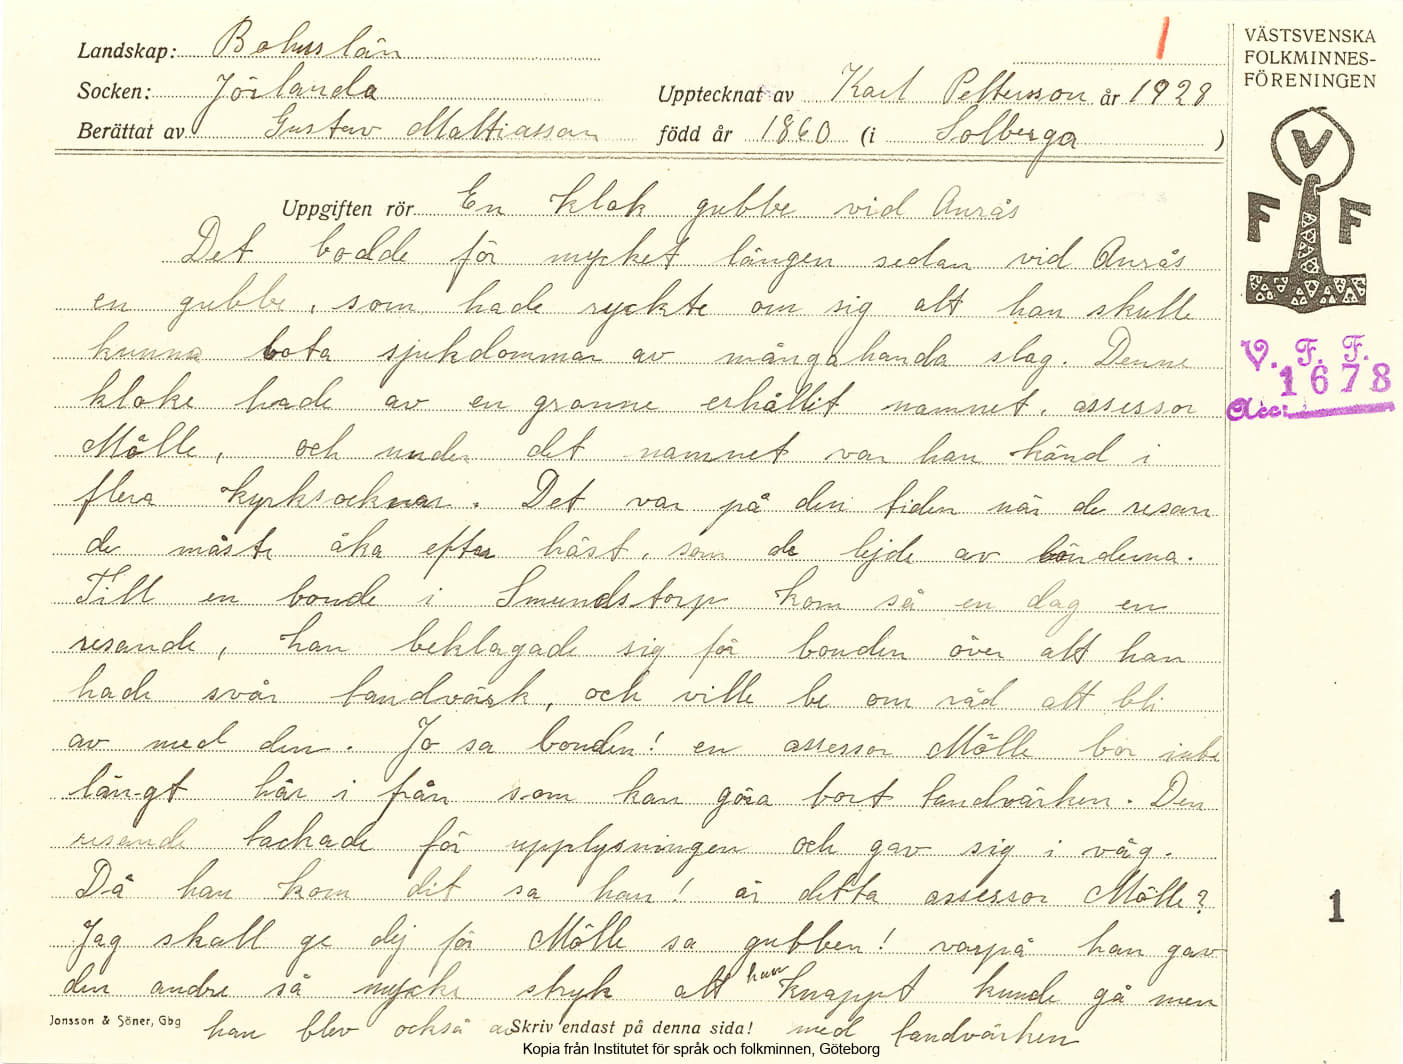 Landskap: Bohuslän
Socken: Jörlanda
Berättat av Gustav Mattiasson
1
Upptecknat av Karl Pettersson år 1928
född år 1860 (i Solberga )
VÄSTSVENSKA
FOLKMINNES-
FÖRENINGEN
V
F F
V. F. F.
1678
Acc:
Uppgiften rör En klok gubbe vid Anrås
Det bodde för mycket längen sedan vid Anrås
en gubbe, som hade ryckte om sig att han skulle
kunna bota sjukdommar av mångahanda slag. Denne
kloke hade av en granne erhållit namnet, assessor
Mölle, och under det namnet var han känd i
flera kyrksocknar. Det var på den tiden när de resan
de måste åka efter häst, som de lejde av bönderna.
Till en bonde i Smundstorp kom så en dag en
resande, han beklagade sig för bonden över att han
hade svår tandvärk, och ville be om råd att bli
av med den. Jo sa bonden! en assessor Mölle bor inte
län-gt här i från som kan göra bort tandvärken. Den
resande tackade för upplysningen och gav sig i väg.
Då han kom dit sa han! är detta assessor Mölle?
Jag skall ge dej för Mölle sa gubben! varpå han gav
den andre så mycke stryk att han knappt kunde gå men
han blev också av med tandvärken
Jonsson & Söner, Gbg
Skriv endast på denna sida!
1
Kopia från Institutet för språk och folkminnen, Göteborg